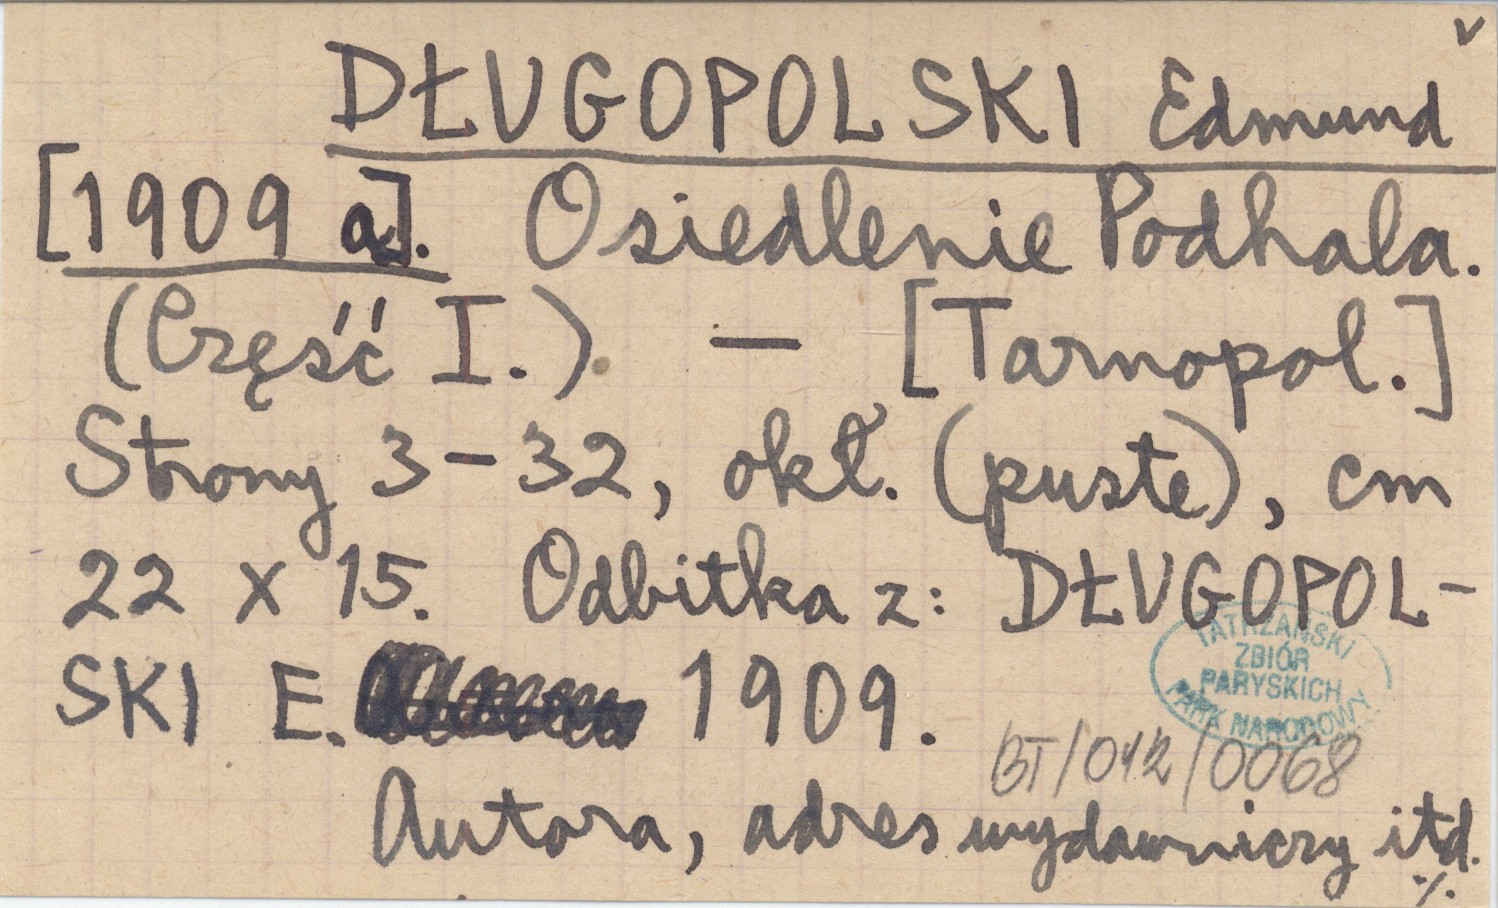 v
DŁUGOPOLSKI Edmund
[1909 a]. Osiedlenie Podhala.
(Część I.). — [Tarnopol.]
Strony 3–32, okł. (puste), cm
22 x 15. Odbitka z: DŁUGOPOL-
SKI E. 1909.
TATRZAŃSKI
ZBIÓR
PARYSKICH
PARK NARODOWY
BT/012/0068
Autora, adres wydawniczy itd.
./.